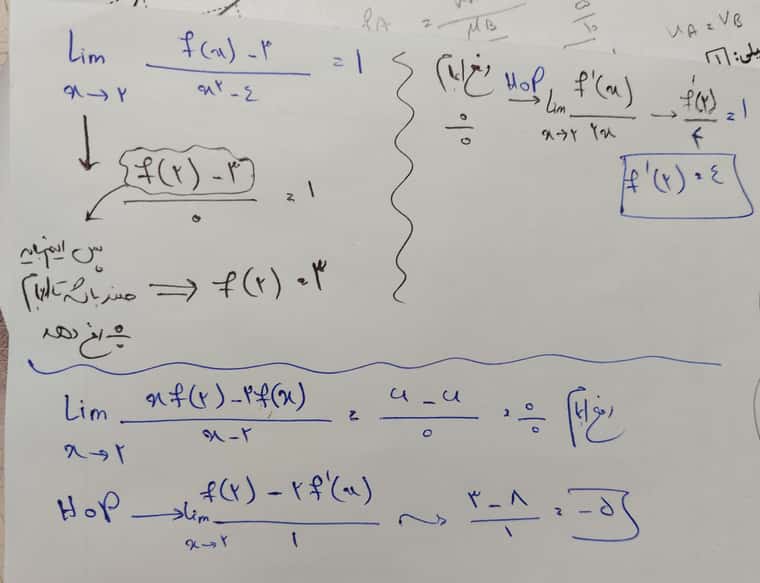 Lim x→۲ (f(x) - ۳)/(x^۲ - ٤) = ۱
(f(۲) - ۳)/۰ = ۱
پس این باید
صفر باشد تا ابهام ⟹ f(۲) = ۳
۰/۰ رخ دهد
رفع ابهام ۰/۰ HoP → Lim x→۲ f'(x)/۲x → f'(۲)/۴ = ۱
f'(۲) = ٤
Lim x→۲ (x f(۲) - ۲f(x))/(x - ۲) = (۶ - ۶)/۰ = ۰/۰ رفع ابهام
HoP → Lim x→۲ (f(۲) - ۲f'(x))/۱ ~> (۳ - ۸)/۱ = -۵
μB
VA = VB